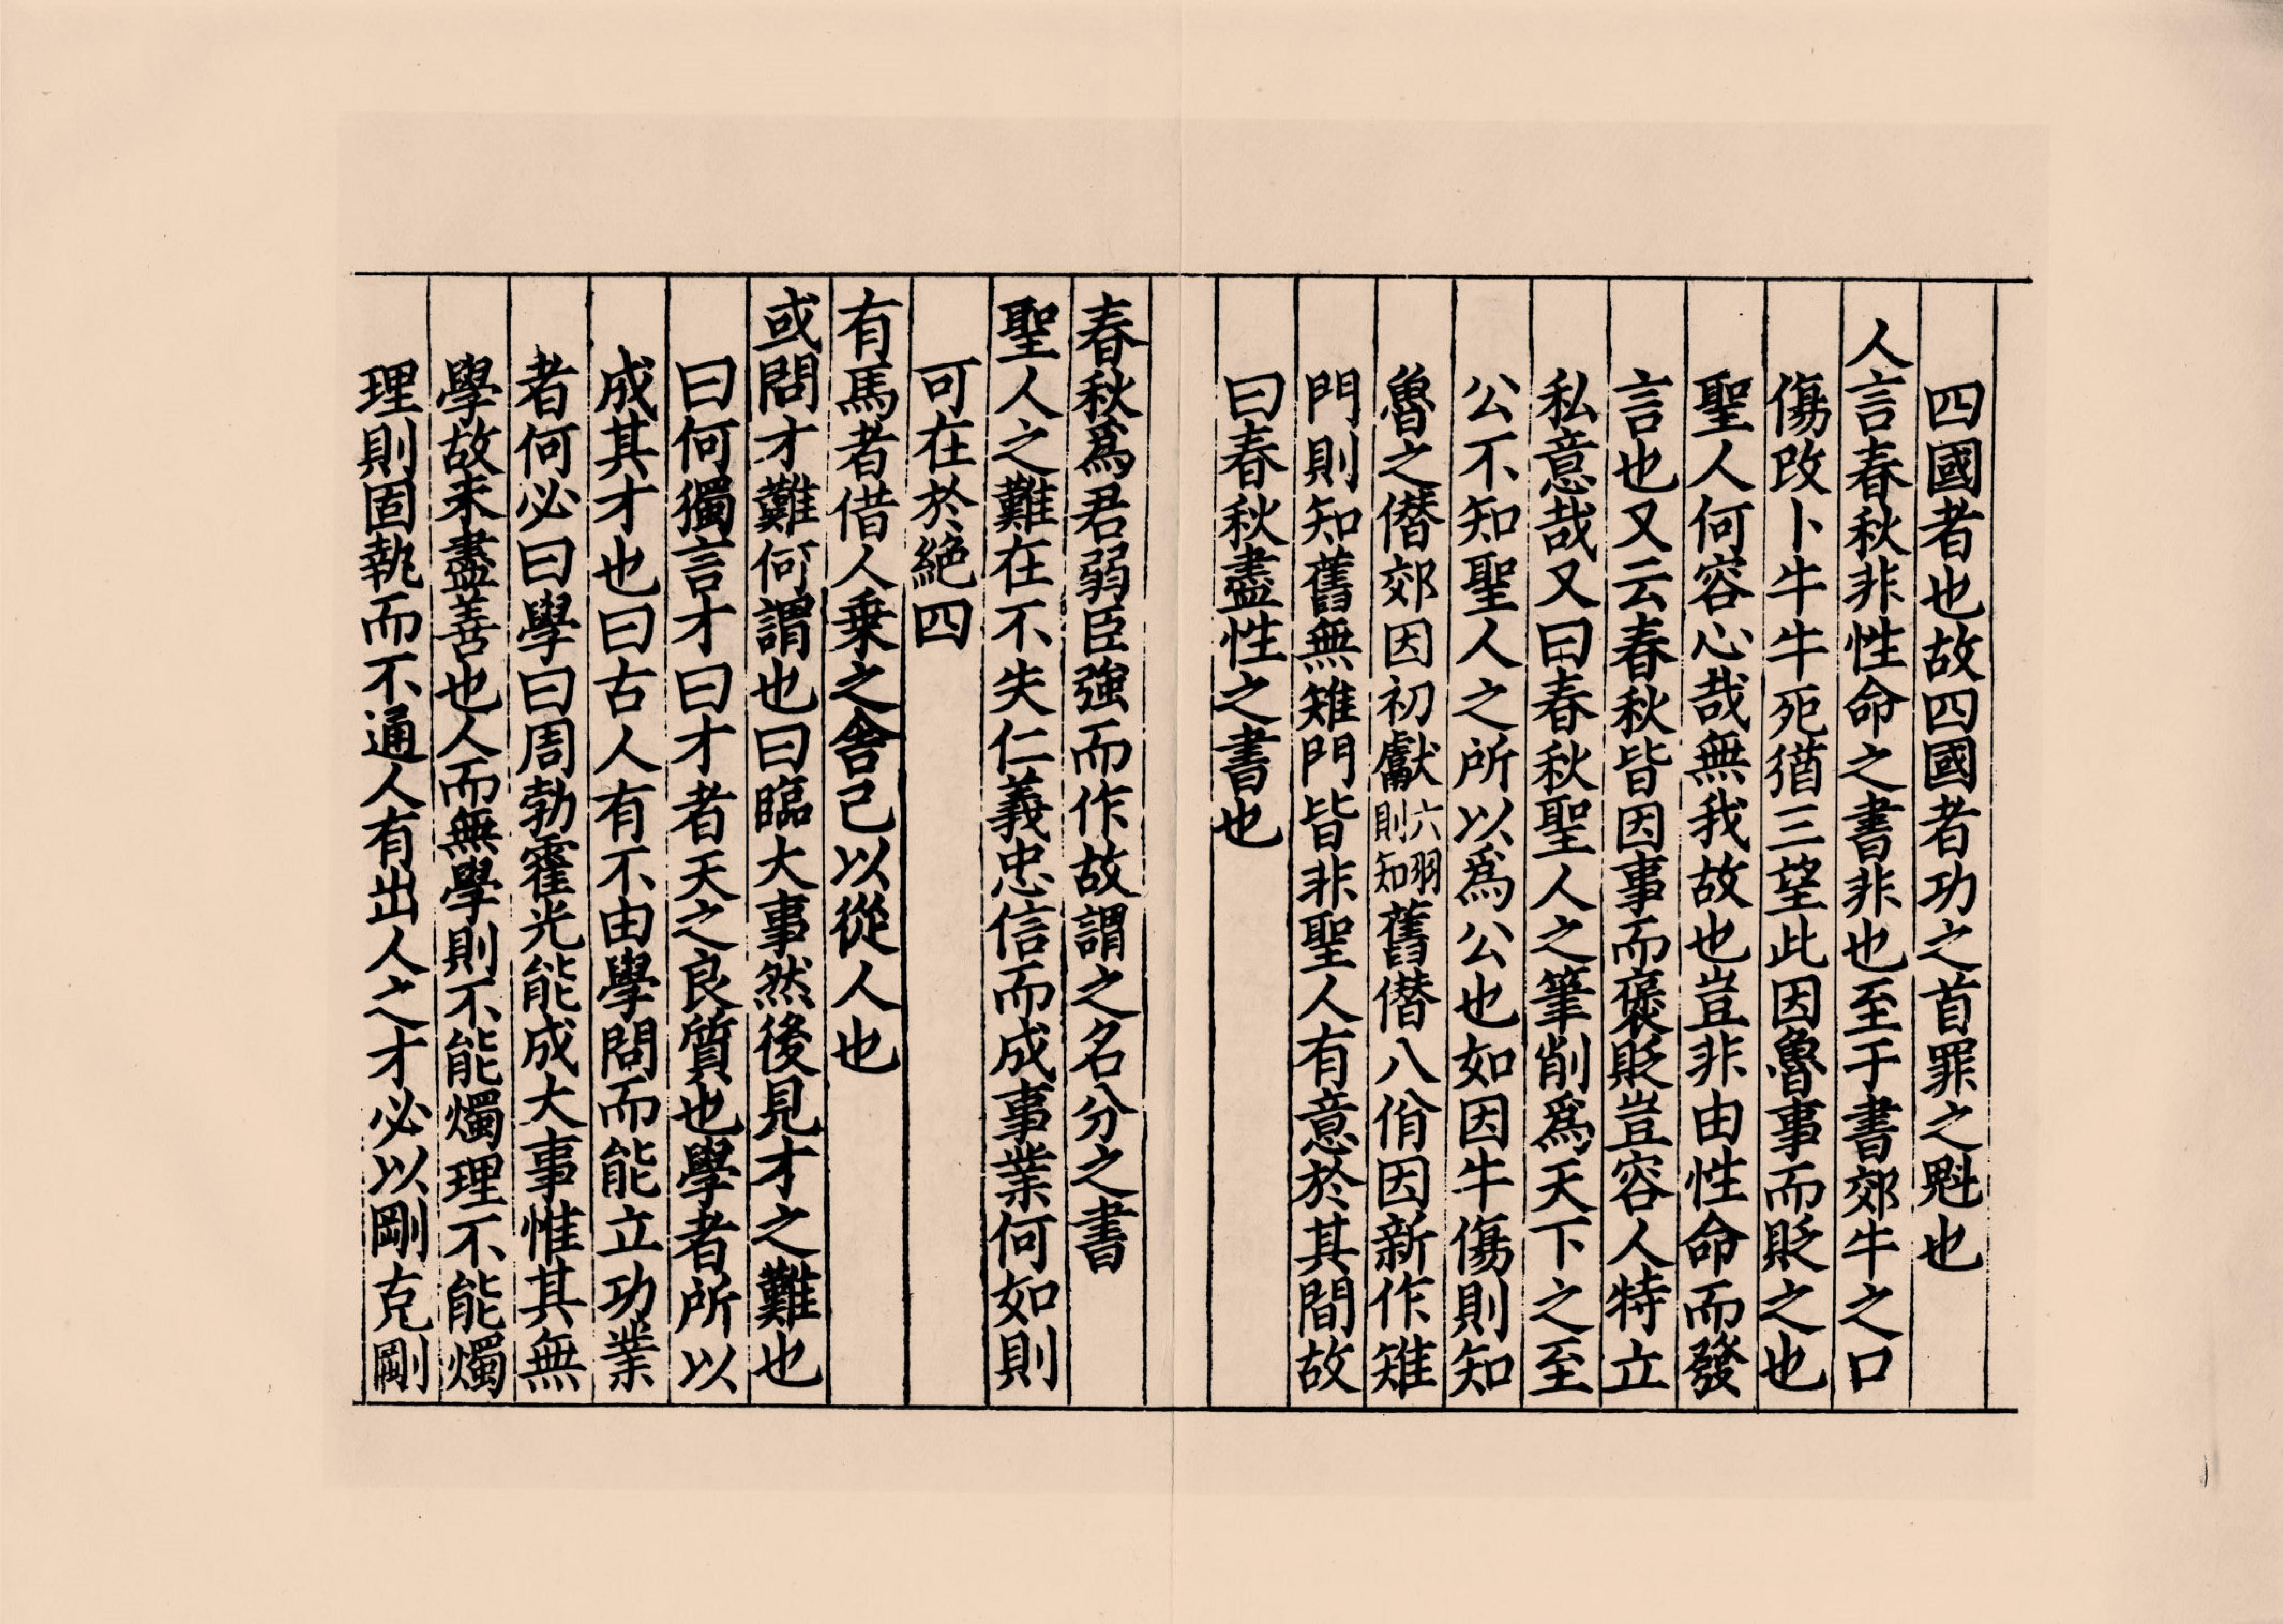 四國者也故四國者功之首罪之魁也
人言春秋非性命之書非也至于書郊牛之口
傷改卜牛牛死猶三望此因魯事而貶之也
聖人何容心哉無我故也豈非由性命而發
言也又云春秋皆因事而襃貶豈容人特立
私意哉又曰春秋聖人之筆削爲天下之至
公不知聖人之所以爲公也如因牛傷則知
魯之僭郊因初獻六羽則知舊僭八佾因新作雉
門則知舊無雉門皆非聖人有意於其間故
曰春秋盡性之書也
春秋爲君弱臣強而作故謂之名分之書
聖人之難在不失仁義忠信而成事業何如則
可在於絶四
有馬者借人乗之舎己以從人也
或問才難何謂也曰臨大事然後見才之難也
曰何獨言才曰才者天之良質也學者所以
成其才也曰古人有不由學問而能立功業
者何必曰學曰周勃霍光能成大事惟其無
學故未盡善也人而無學則不能燭理不能燭
理則固執而不通人有出人之才必以剛克剛